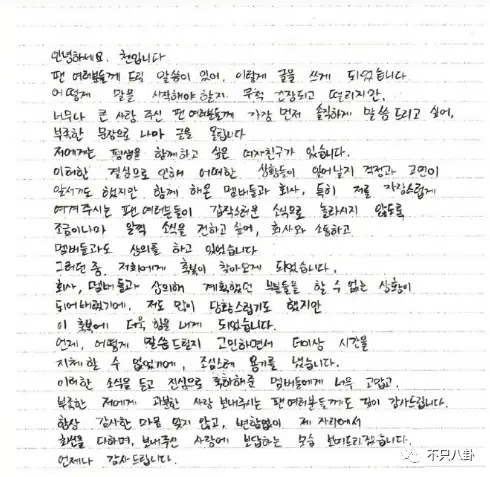 안녕하세요. 첸입니다
팬 여러분들께 드릴 말씀이 있어, 이렇게 글을 쓰게 되었습니다
어떻게 말을 시작해야할지 무척 긴장되고 떨리지만,
너무나 큰 사랑 주신 팬 여러분들께 가장 먼저 솔직하게 말씀드리고 싶어,
부족한 문장으로 나마 글을 올립니다
저에게는 평생을 함께하고 싶은 여자친구가 있습니다.
이러한 결심으로 인해 어떠한 상황들이 일어날지 걱정과 고민이
앞서기도 했지만 함께 해온 멤버들과 회사, 특히 저를 자랑스럽게
여겨주시는 팬 여러분들이 갑작스러운 소식으로 놀라시지 않도록
조금이나마 일찍 소식을 전하고 싶어, 회사와 소통하고
멤버들과도 상의를 하고 있었습니다
그러던 중, 저희에게 축복이 찾아오게 되었습니다.
회사, 멤버들과 상의해 계획했던 부분들을 할 수 없는 상황이
되어버렸기에, 저도 많이 당황스럽기도 했지만
이 축복에 더욱 힘을 내게 되었습니다.
언제, 어떻게 말씀드릴지 고민하면서 더이상 시간을
지체할 수 없었기에, 조심스레 용기를 냈습니다.
이러한 소식을 듣고 진심으로 축하해준 멤버들에게 너무 고맙고,
부족한 저에게 과분한 사랑 보내주시는 팬 여러분들께도 깊이 감사드립니다.
항상 감사한 마음 잊지 않고, 변함없이 제 자리에서
최선을 다하며, 보내주신 사랑에 보답하는 모습 보여드리겠습니다.
언제나 감사드립니다.
不只八卦